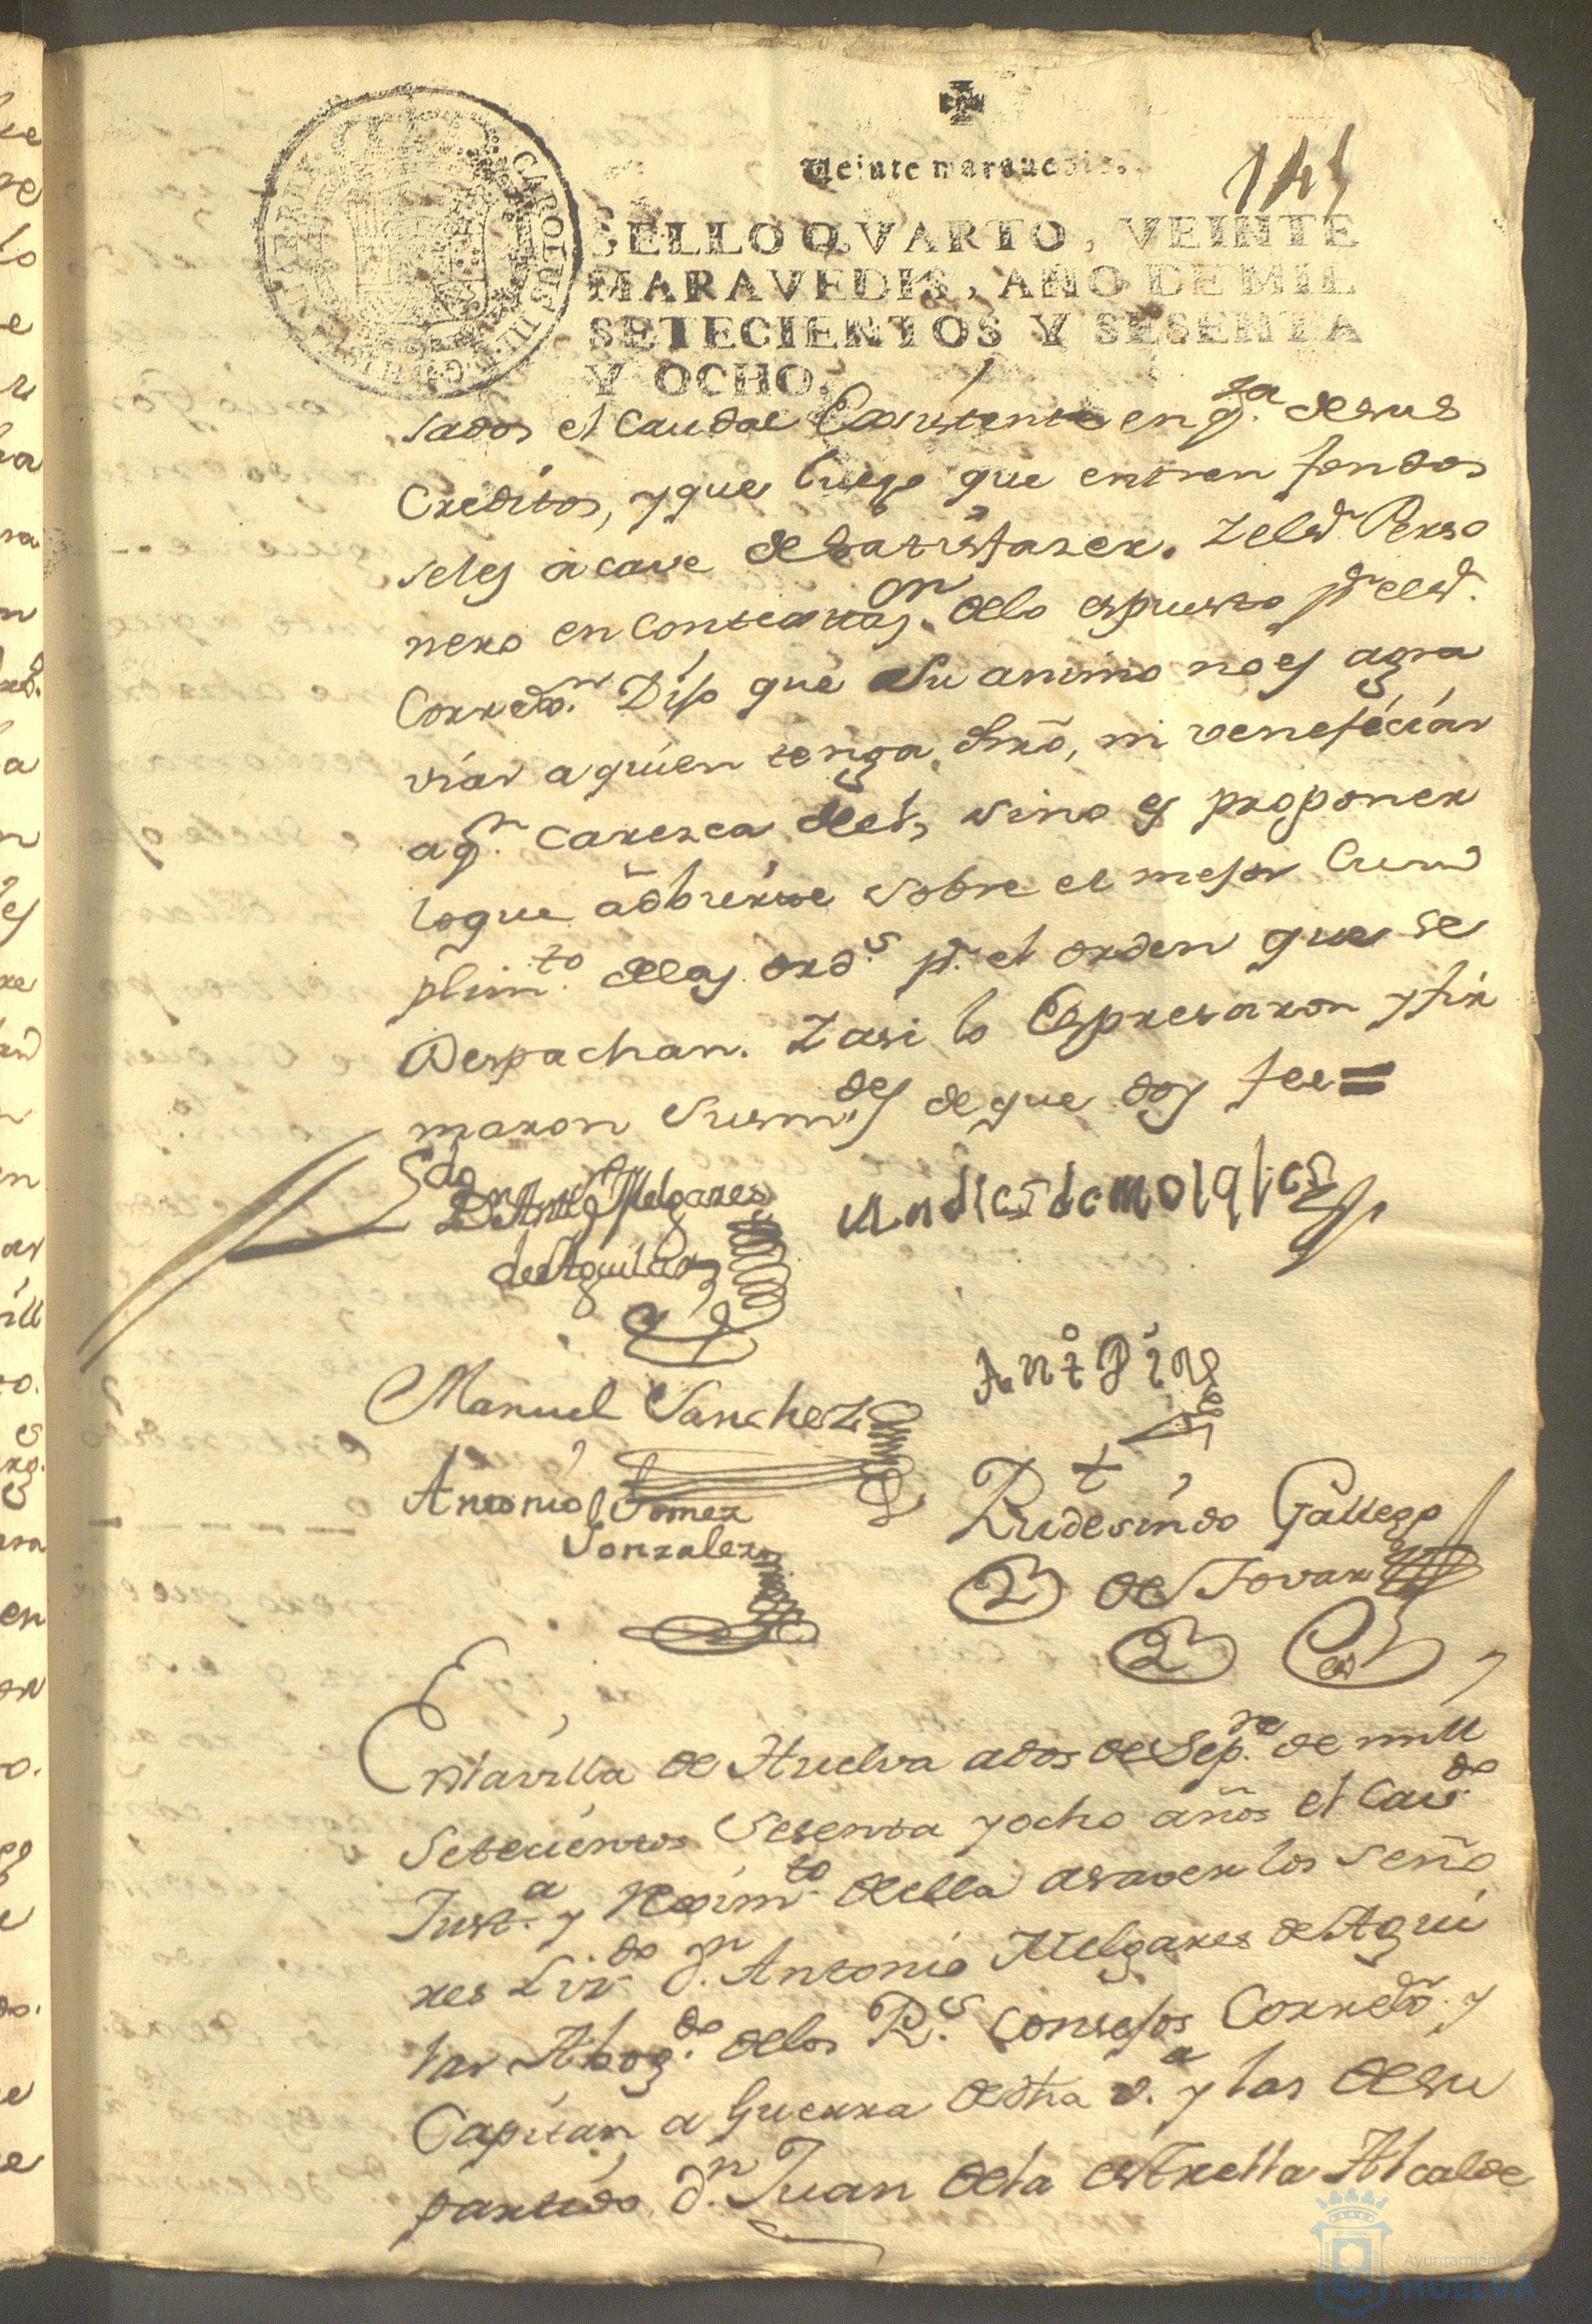 Veinte maravedis.
145
SELLO QVARTO, VEINTE
MARAVEDIS, AÑO DE MIL
SETECIENTOS Y SESENTA
Y OCHO.
CAROLUS III
sados el caudal Existente en qta. de sus
Creditos, y que luego que entren fondos
seles acave de satisfaser. Y el sr. Perso
nero en contextazon. de lo espuesto pr. el sr.
Corredor. Dijo que su animo no es agra
viar a quien tenga dro, ni veneficiar
a qn. caresca de el, sino es proponer
lo que adbierte sobre el mejor Cum
plimto. de las ords. pr. el orden que se
Despachan. Y asi lo Espresaron y fir
maron Susmdes, de que doy fee =
Ldo Dn. Anto Melgares
de Aguilar
Manuel Sanchez
Anto Diaz
Antonio Gomez
Gonzalez
Rudesindo Gallego
de Tovar
En la villa de Huelva a dos de Sepre. de mill
Setecientos Sesenta y ocho años el Cavdo.
Justa. y Reximto. de ella a saver los Seño
res Lizdo. dn. Antonio Melgares de Agui
lar Abogdo. de los Rs. Consejos Corredor. y
Capitan a Guerra de dha va. y las de su
partido, dn. Juan de la Estrella Alcalde
Ayuntamiento de
HUELVA